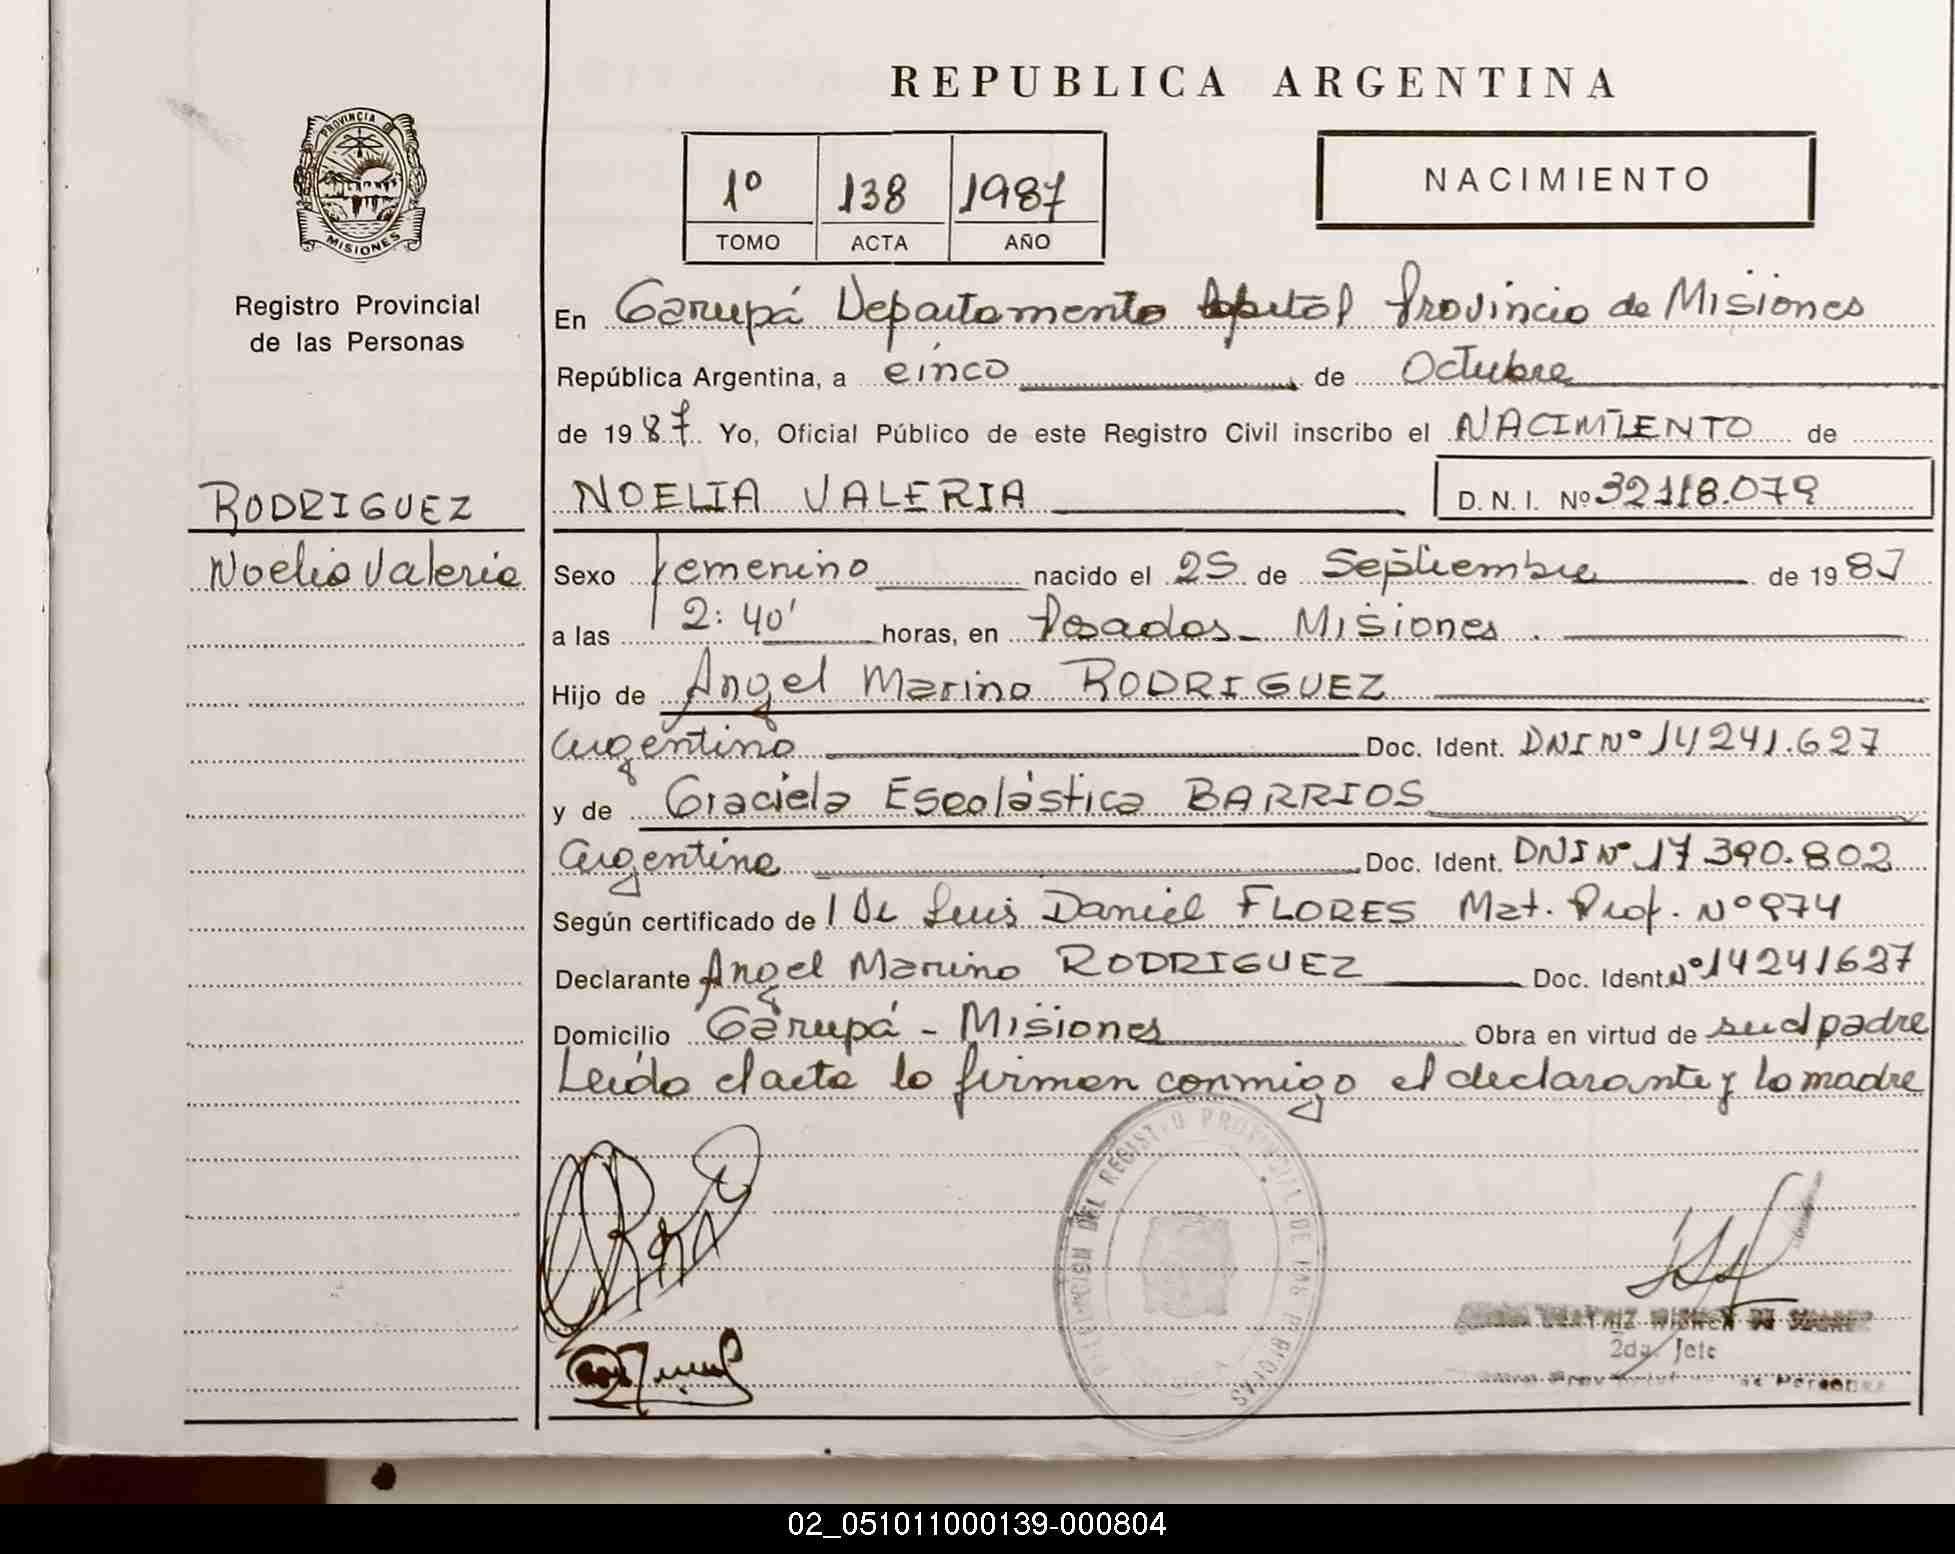 REPUBLICA ARGENTINA
PROVINCIA DE
MISIONES
Registro Provincial
de las Personas
1º 138 1987
TOMO ACTA AÑO
NACIMIENTO
En Garupá Departamento Capital Provincia de Misiones
República Argentina, a cinco de Octubre
de 1987. Yo, Oficial Público de este Registro Civil inscribo el NACIMIENTO de
RODRIGUEZ
Noelia Valeria
NOELIA VALERIA D. N. I. Nº 32118.079
Sexo femenino nacido el 25 de Septiembre de 1987
a las 2:40' horas, en Posadas - Misiones.
Hijo de Angel Marino RODRIGUEZ
argentino Doc. Ident. DNI Nº 14241.627
y de Graciela Escolástica BARRIOS
argentina Doc. Ident. DNI Nº 17390.802
Según certificado de Luis Daniel FLORES Mat. Prof. Nº 974
Declarante Angel Marino RODRIGUEZ Doc. Ident. Nº 14241627
Domicilio Garupá - Misiones Obra en virtud de su padre
Leída el acta lo firman conmigo el declarante y la madre
DEL REGISTRO PROVINCIAL DE LAS
2da. Jefe
02_051011000139-000804